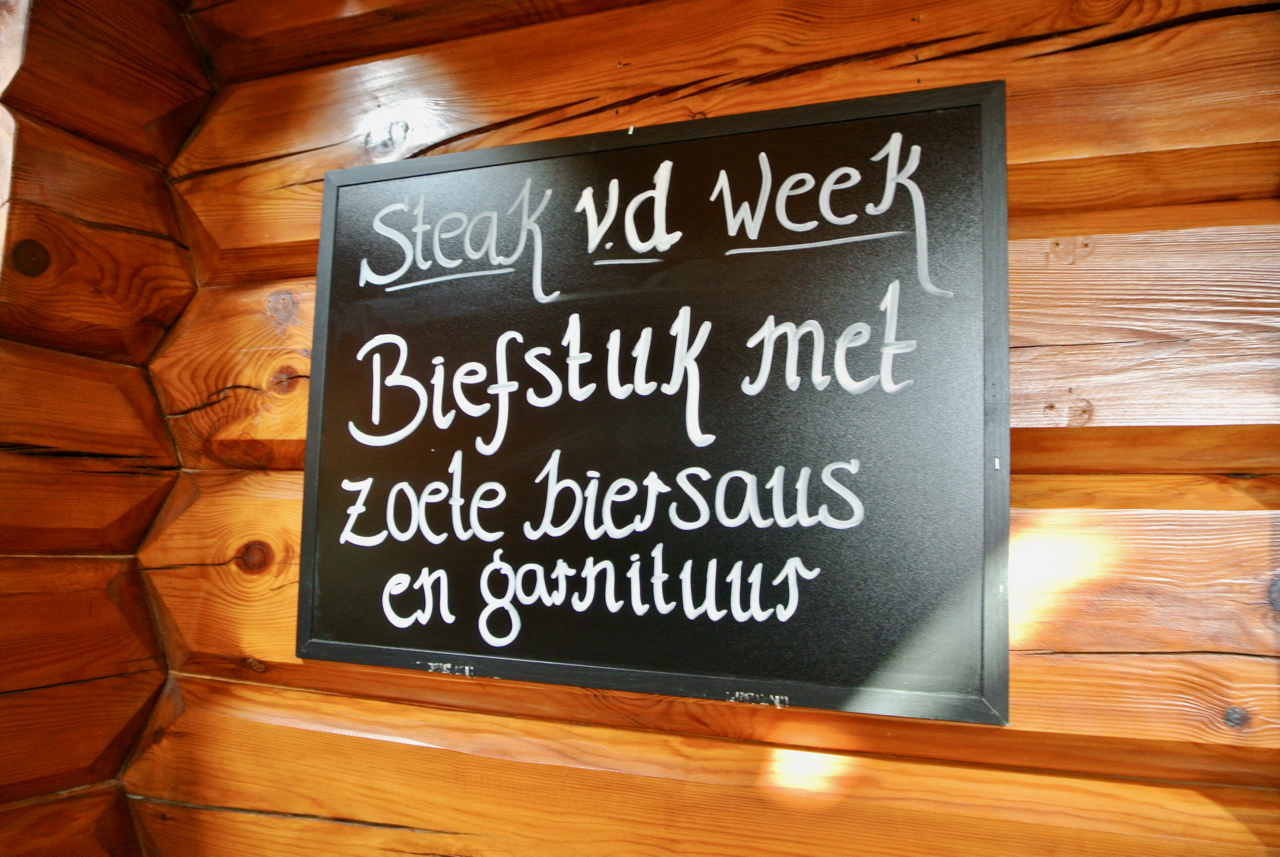 Steak v.d Week
Biefstuk met
zoete biersaus
en garnituur